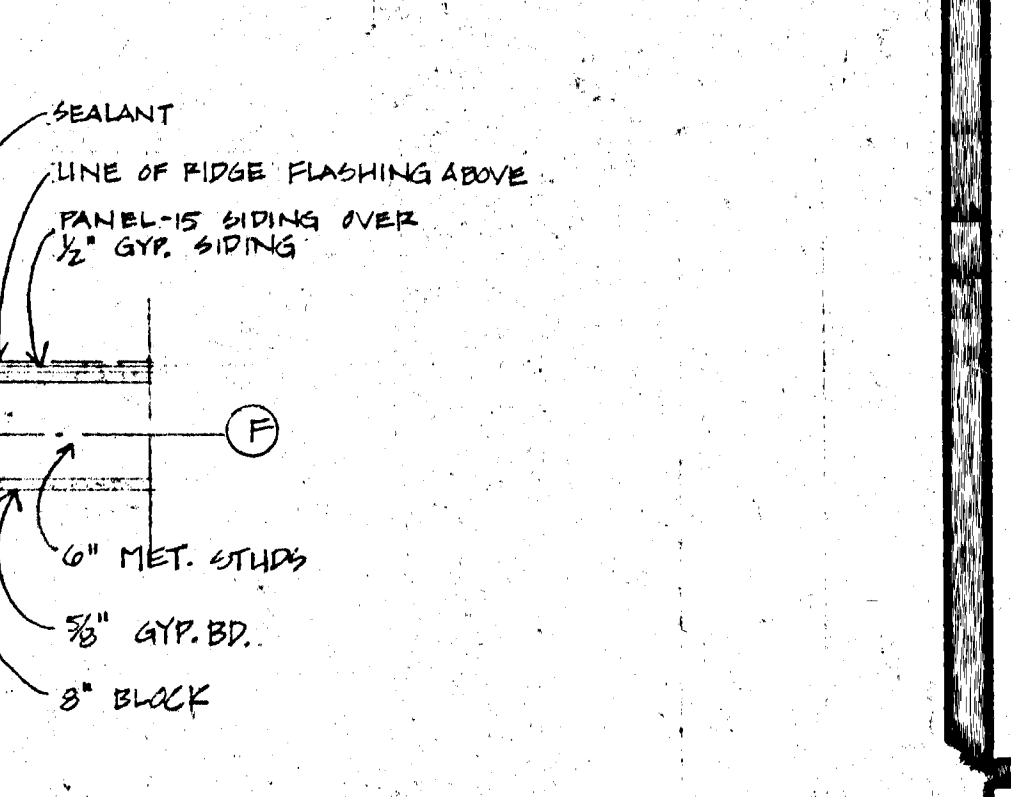 SEALANT
LINE OF RIDGE FLASHING ABOVE
PANEL-15 SIDING OVER
1/2" GYP. SIDING
F
6" MET. STUDS
5/8" GYP. BD.
8" BLOCK